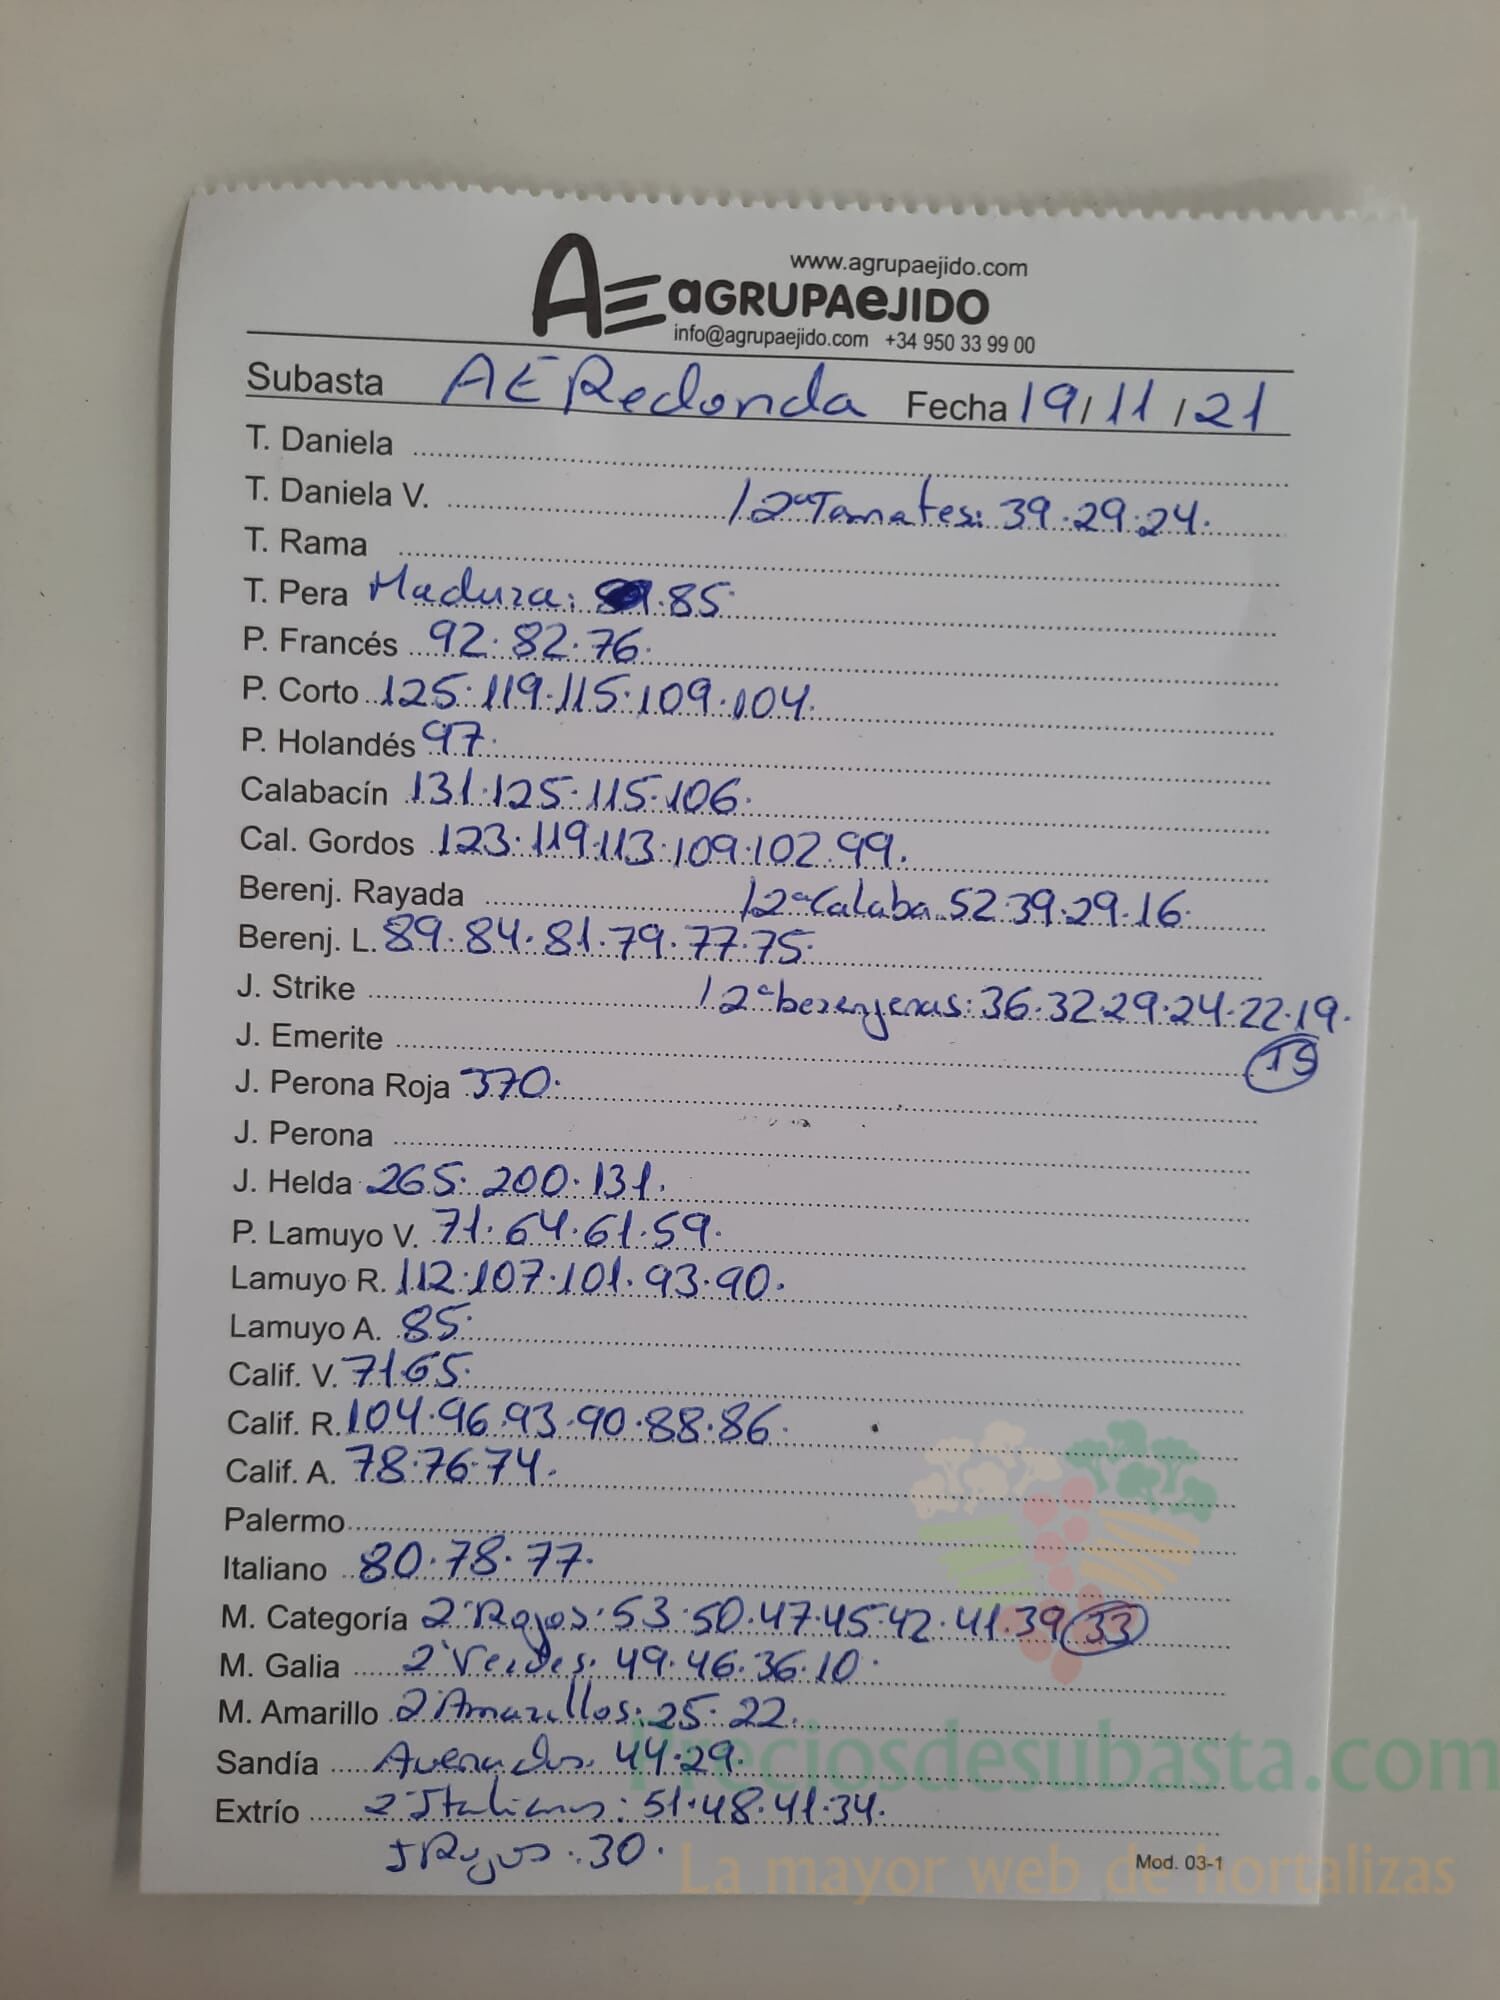 www.agrupaejido.com
AE aGRUPAeJIDO
info@agrupaejido.com +34 950 33 99 00
Subasta AE Redonda Fecha 19/11/21
T. Daniela
T. Daniela V. / 2ª Tomates: 39.29.24.
T. Rama
T. Pera Madura: .85.
P. Francés 92.82.76.
P. Corto 125.119.115.109.104.
P. Holandés 97.
Calabacín 131.125.115.106.
Cal. Gordos 123.119.113.109.102.99.
Berenj. Rayada / 2ª Calaba. 52.39.29.16.
Berenj. L. 89.84.81.79.77.75.
J. Strike / 2ª berenjenas: 36.32.29.24.22.19.
J. Emerite 15
J. Perona Roja 370.
J. Perona
J. Helda 265.200.131.
P. Lamuyo V. 71.64.61.59.
Lamuyo R. 112.107.101.93.90.
Lamuyo A. 85.
Calif. V. 71.65.
Calif. R. 104.96.93.90.88.86.
Calif. A. 78.76.74.
Palermo
Italiano 80.78.77.
M. Categoría 2ª Rojos: 53.50.47.45.42.41.39 33
M. Galia 2ª Verdes. 49.46.36.10.
M. Amarillo 2ª Amarillos: 25.22.
Sandía 44.29.
Extrío 2 Italianos: 51.48.41.34.
Rojos .30.
Mod. 03-1
Preciosdesubasta.com
La mayor web de hortalizas